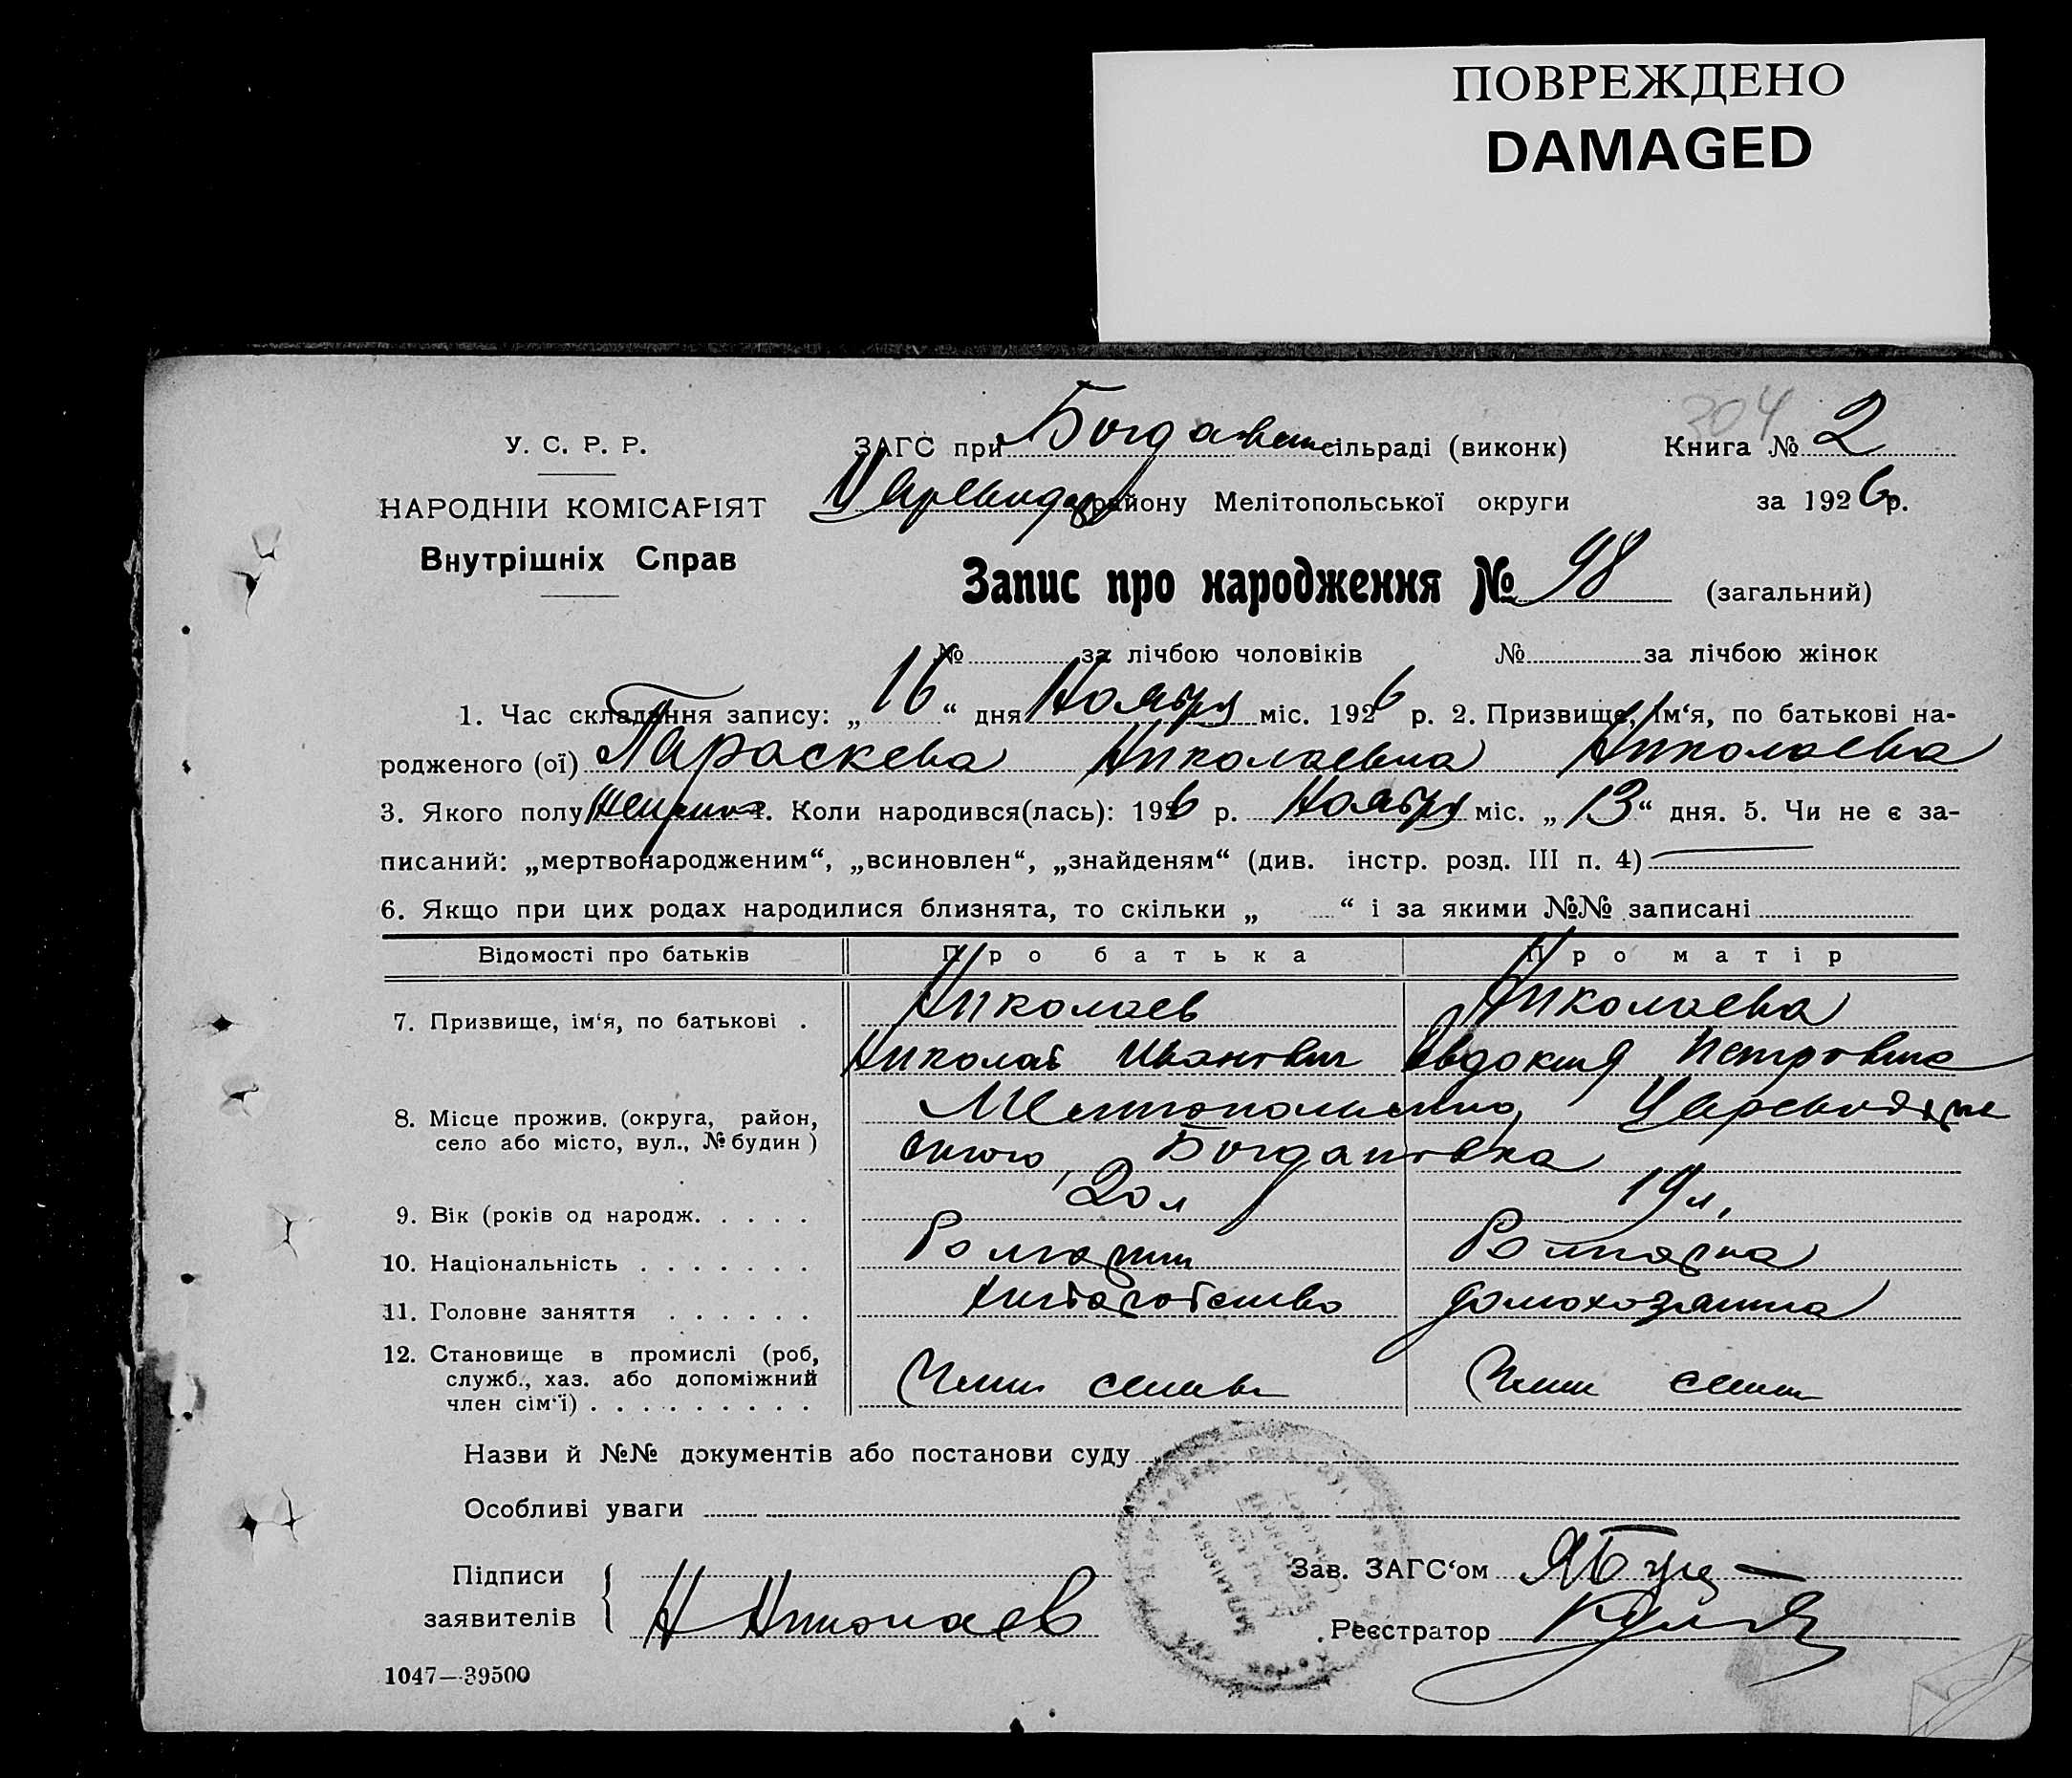 ПОВРЕЖДЕНО
DAMAGED
304
У. С. Р. Р.
НАРОДНІЙ КОМІСАРІЯТ
Внутрішніх Справ
ЗАГС при Богдановск сільраді (виконк) Книга № 2
району Мелітопольської округи за 1926 р.
Запис про народження № 98 (загальний)
№ за лічбою чоловіків № за лічбою жінок
1. Час складання запису: „16“ дня Ноября міс. 1926 р. 2. Призвище, ім‘я, по батькові на-
родженого (ої) Параскева Николаевна Николаева
3. Якого полу женског 4. Коли народився(лась): 1926 р. Ноября міс. „13“ дня. 5. Чи не є за-
писаний: „мертвонародженим“, „всиновлен“, „знайденям“ (див. інстр. розд. III п. 4)
6. Якщо при цих родах народилися близнята, то скільки „ “ і за якими №№ записані
Відомості про батьків Про батька Про матір
7. Призвище, ім‘я, по батькові . Николаев Николаева
Николай Иванович Евдокия Петровна
8. Місце прожив. (округа, район, Мелитопольского,
село або місто, вул., № будин ) ского, Богдановка
9. Вік (років од народж. . . . . 20 л 19 л,
10. Національність . . . . . . . Болгарин Болгарка
11. Головне заняття . . . . . . хлебопашество домохозяйка
12. Становище в промислі (роб,
служб., хаз. або допоміжний Член семьи Член семьи
член сім‘ї) . . . . . . . . .
Назви й №№ документів або постанови суду
Особливі уваги
Підписи Зав. ЗАГС‘ом
заявителів Н Николаев Реєстратор
1047—39500